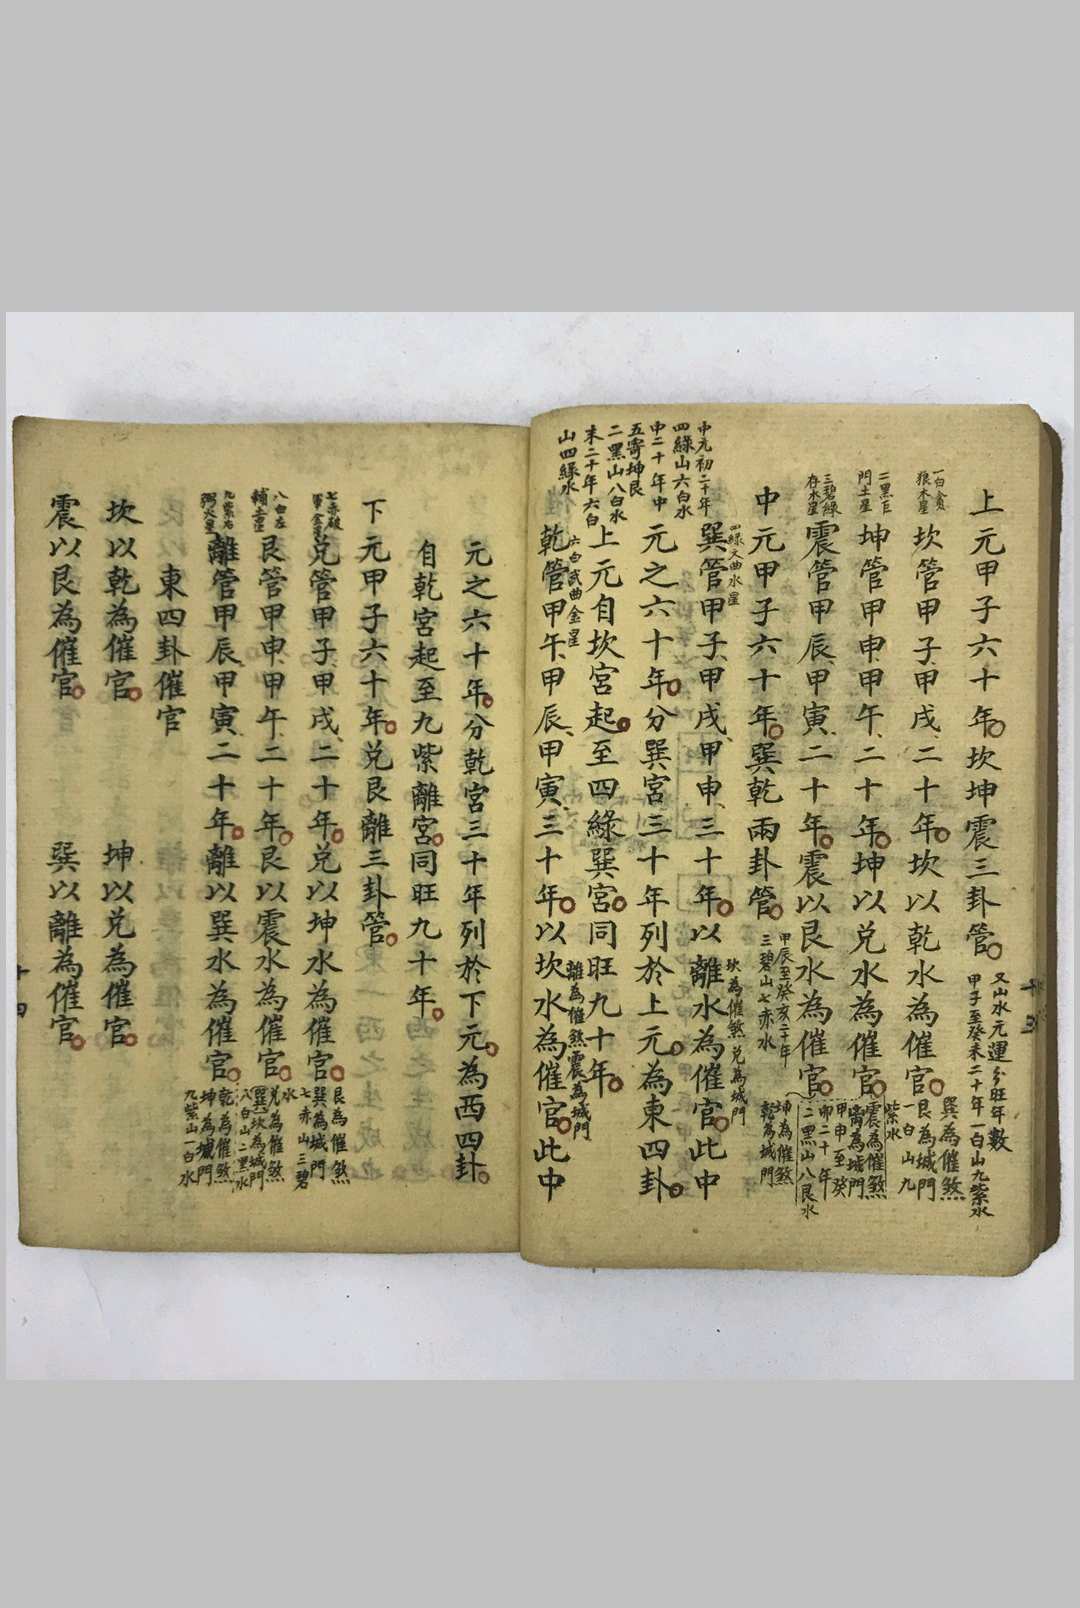 上元甲子六十年坎坤震三卦管
又山水元運分旺年數
甲子至癸未二十年一白山九紫水
一白貪
狼木星
坎管甲子甲戌二十年坎以乾水為催官
巽為催煞
艮為城門
一白山九
紫水
二黑巨
門土星
坤管甲申甲午二十年坤以兌水為催官
震為催煞
离為城門
甲申至癸
卯二十年
二黑山八艮水
三碧祿
存木星
震管甲辰甲寅二十年震以艮水為催官
坤為催煞
乾為城門
中元甲子六十年巽乾兩卦管
甲辰至癸亥二十年
三碧山七赤水
四綠文曲水星
巽管甲子甲戌甲申三十年以離水為催官此中
坎為催煞兌為城門
元之六十年分巽宮三十年列於上元為東四卦
上元自坎宮起至四綠巽宮同旺九十年
六白武曲金星
乾管甲午甲辰甲寅三十年以坎水為催官此中
離為催煞震為城門
中元初二十年
四綠山六白水
中二十年中
五寄坤艮
二黑山八白水
末二十年六白
山四綠水
十三
元之六十年分乾宮三十年列於下元為西四卦
自乾宮起至九紫離宮同旺九十年
下元甲子六十年兌艮離三卦管
七赤破
軍金星
兌管甲子甲戌二十年兌以坤水為催官
艮為催煞
巽為城門
七赤山三碧
水
八白左
輔土星
艮管甲申甲午二十年艮以震水為催官
兌為催煞
坎為城門
八白山二黑水
九紫右
弼火星
離管甲辰甲寅二十年離以巽水為催官
乾為催煞
坤為城門
九紫山一白水
東四卦催官
坎以乾為催官 坤以兌為催官
震以艮為催官 巽以離為催官
十四